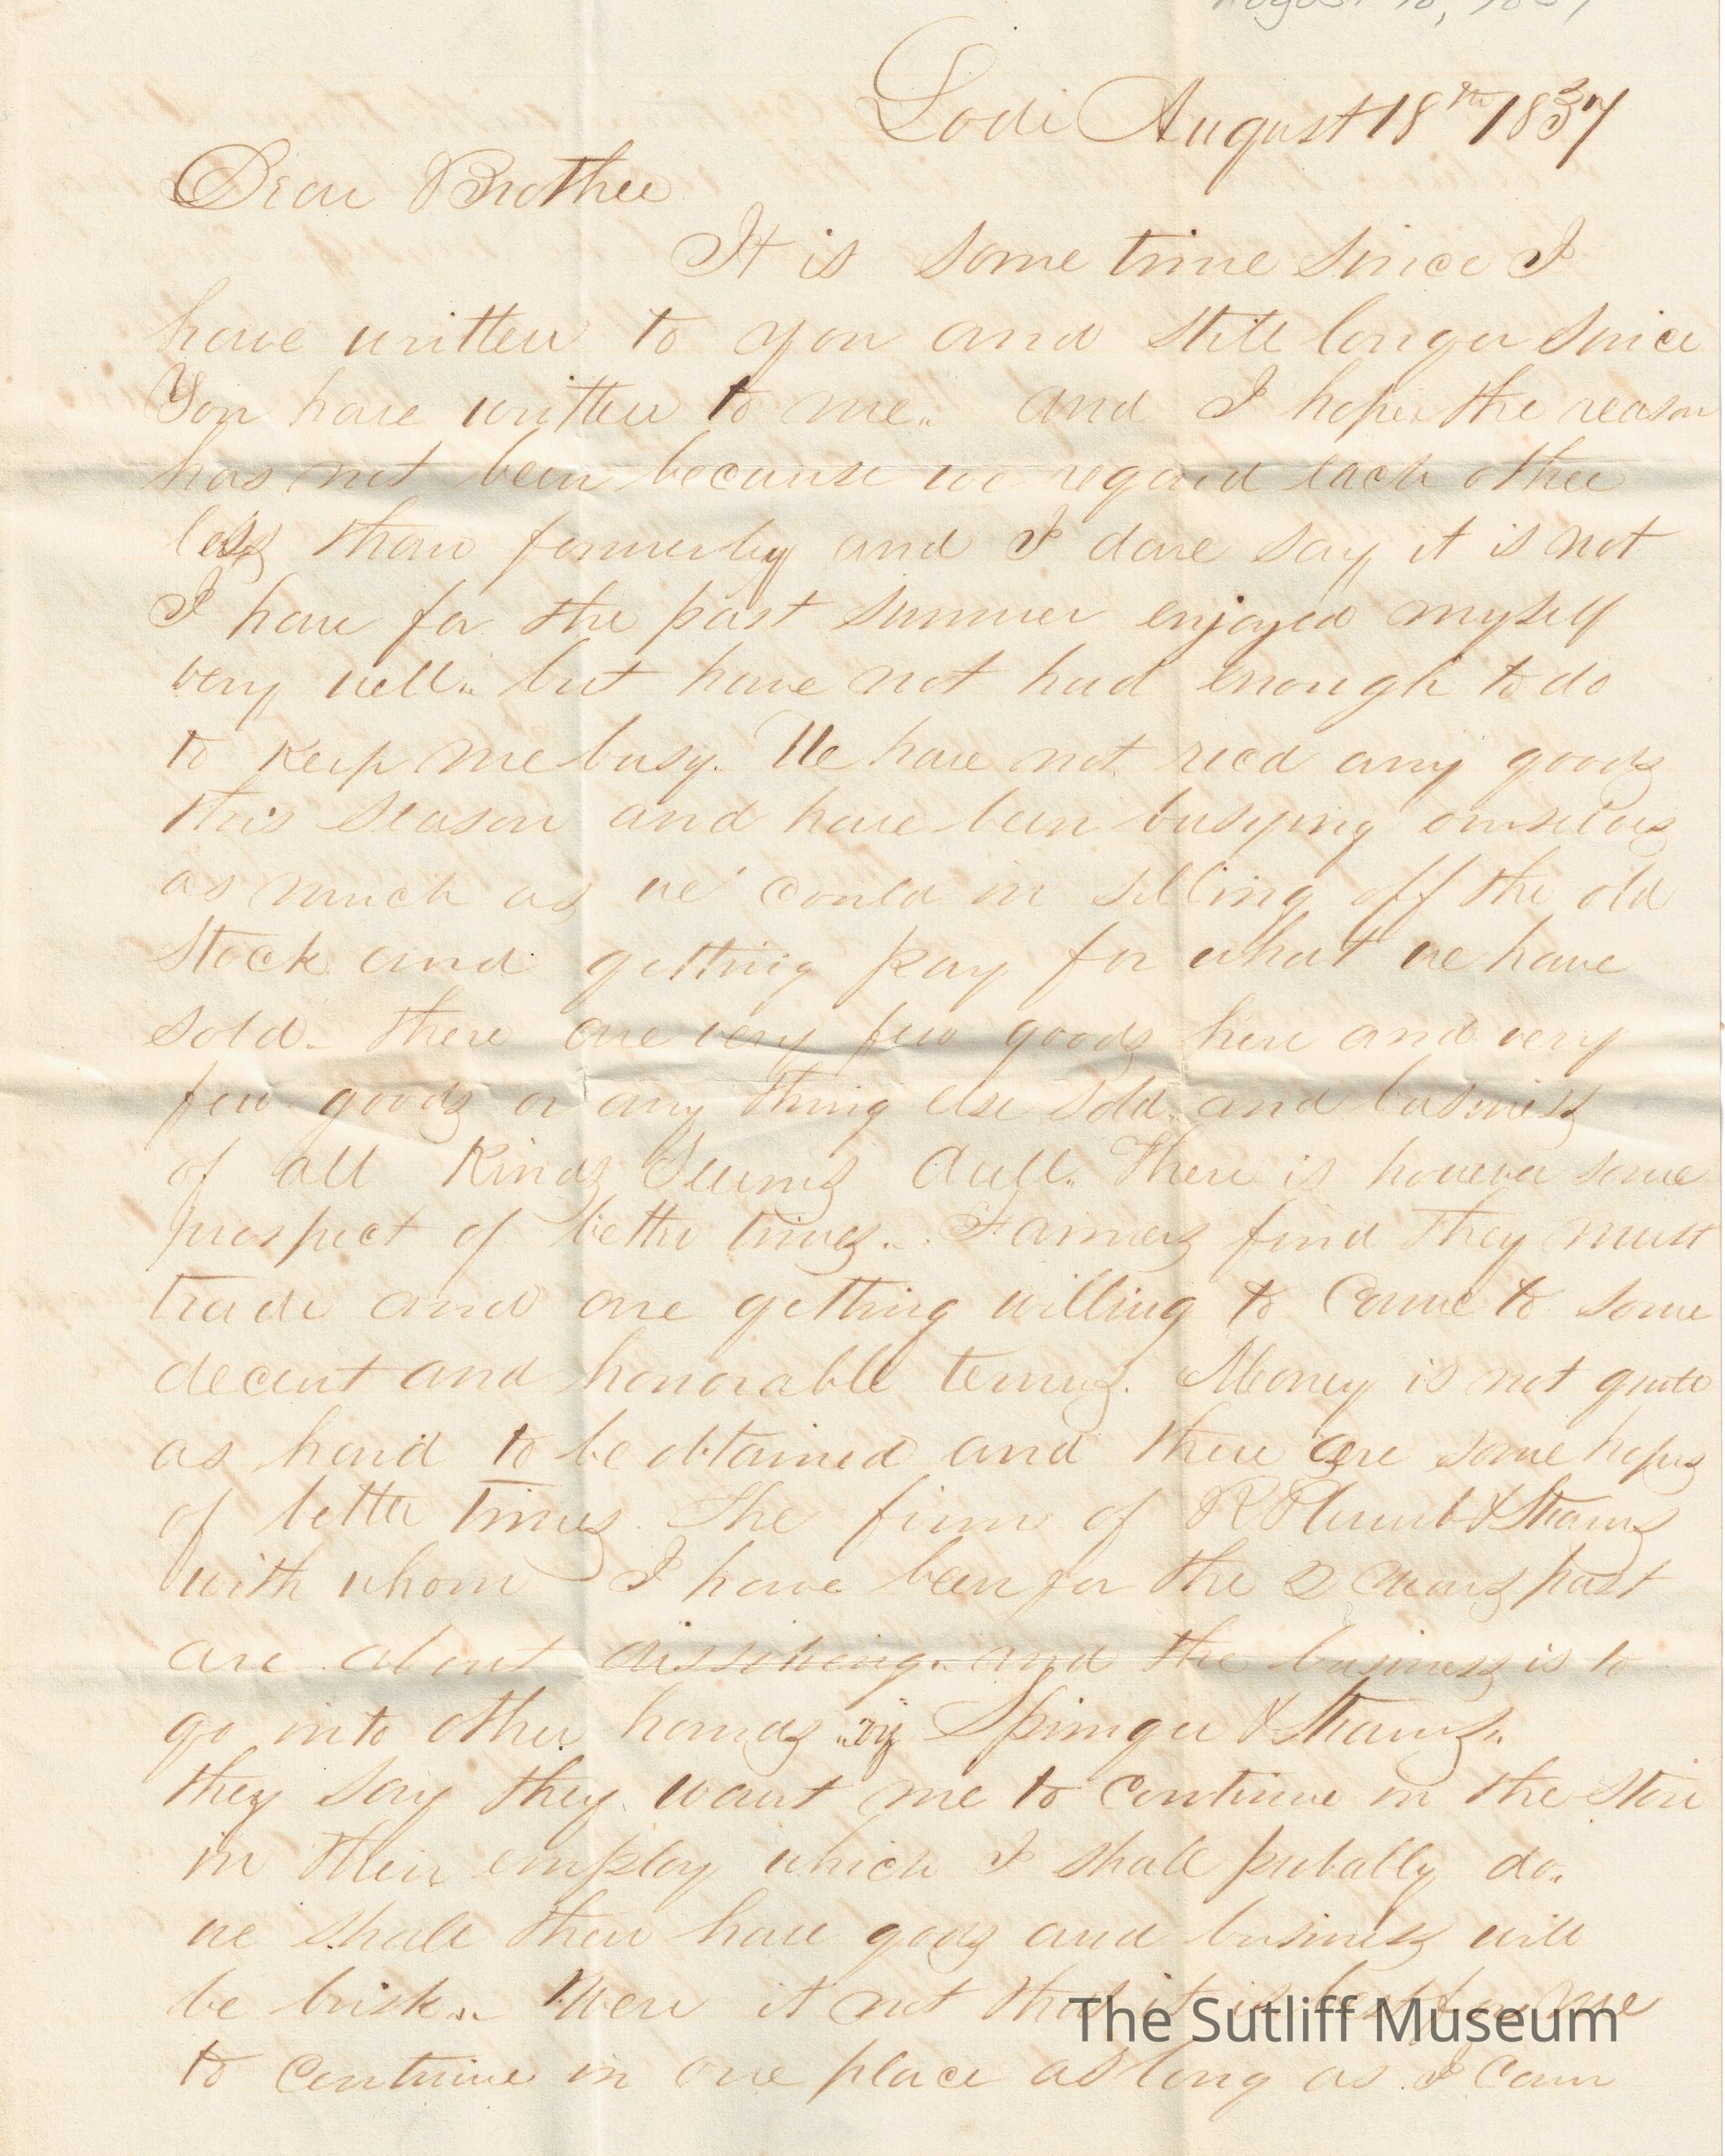 August 18, 1837
Lodi August 18th 1837
Dear Brother
It is some time since I
have written to you and still longer since
You have written to me. and I hope the reason
has not been because we regard each other
less than formerly and I dare say it is not
I have for the past summer enjoyed myself
very well. but have not had enough to do
to keep me busy. We have not recd any goods
this season and have been busying ourselves
as much as we could in selling off the old
stock and getting pay for what we have
sold. there are very few goods here and very
few goods or any thing else sold. and business
of all Kinds Seems dull. There is however some
prospect of better times. Farmers find they must
trade and are getting willing to Come to some
decent and honorable terms. Money is not quite
as hard to be obtained and there are some hopes
of better times. The firm of R Plumb & Stearns
with whom I have been for the 2 years past
are about dissolving. and the business is to
go into other hands viz Springer & Stearns.
they say they want me to continue in the store
in their employ which I shall probally do.
we shall then have goods and business will
be brisk. Were it not that it is best for me
to continue in one place as long as I can
The Sutliff Museum